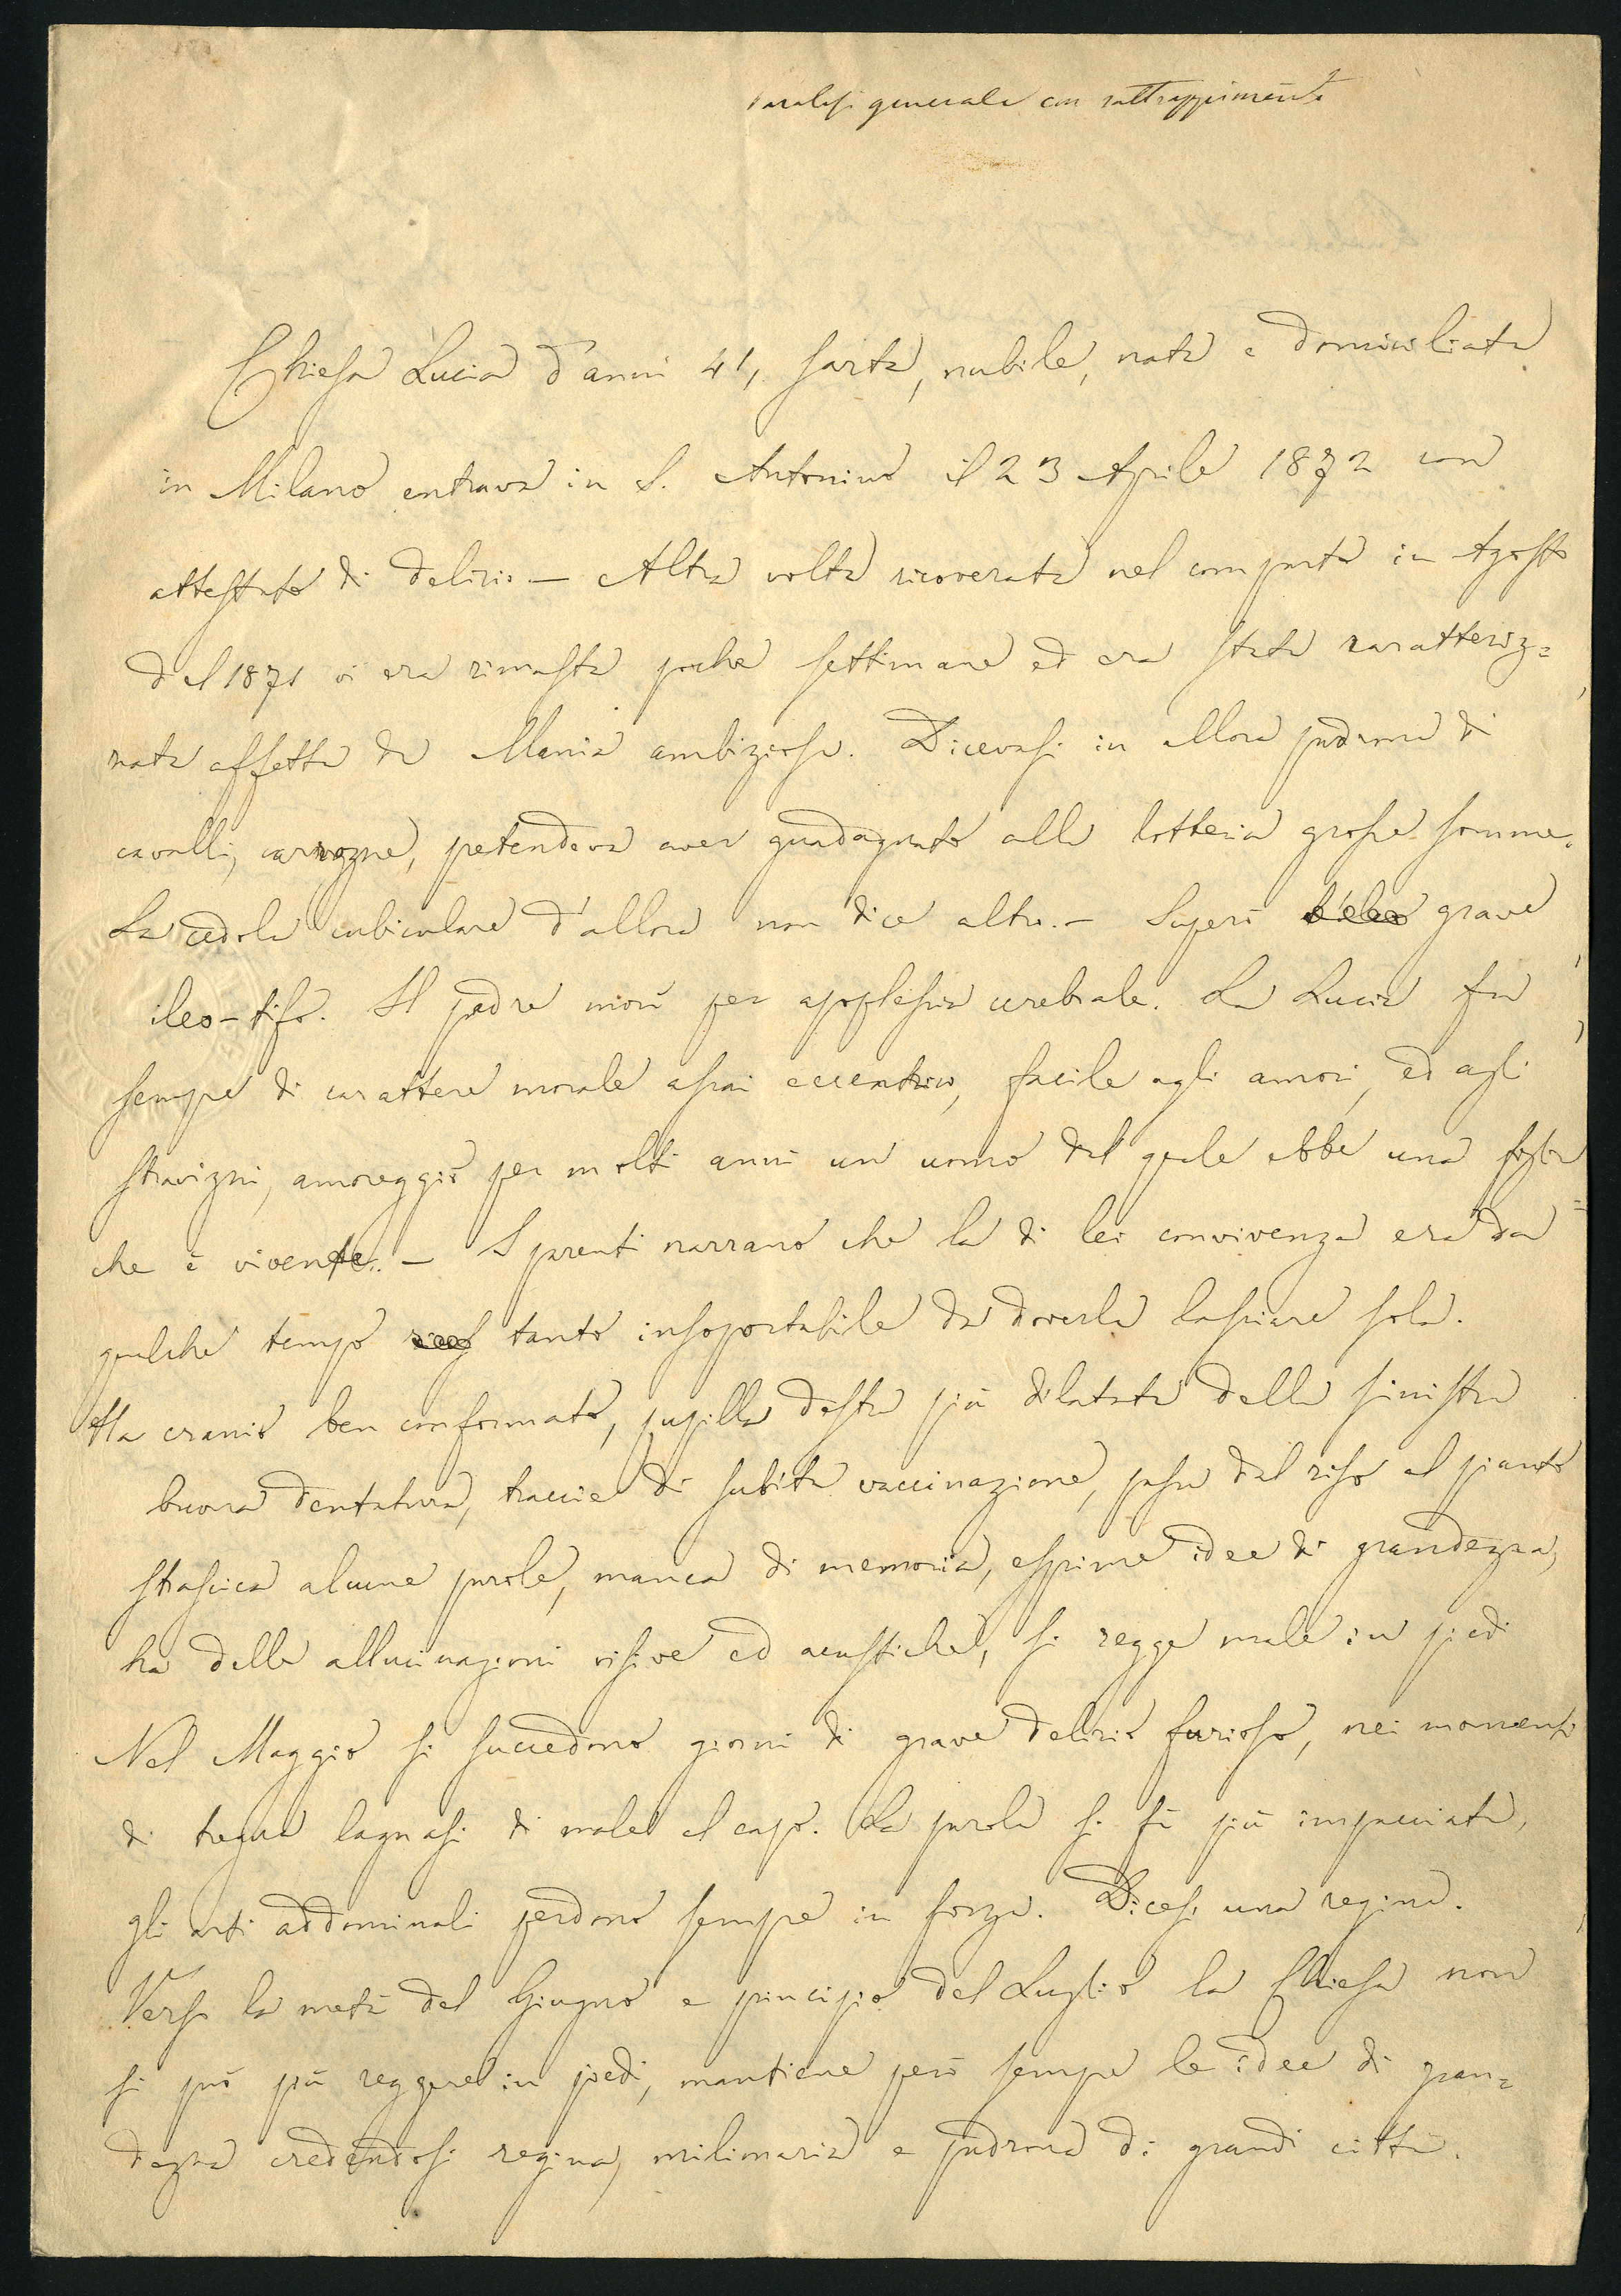 Paralisi generale con rattrappimento
Chiesa Lucia d'anni 41, sarta, nubile, nata e domiciliata
in Milano entrava in S. Antonino il 23 Aprile 1872 con
attestato di delirio. — Altra volta ricoverata nel comparto in Agosto
del 1871 vi era rimasta poche settimane ed era stata caratteriz=
zata affetta da Mania ambiziosa. Dicevasi in allora padrona di
cavalli, carrozze, petendeva aver guadagnato alla lotteria grosse somme.
La cedola cubiculare d'allora non dice altro. — Superò grave
ileo-tifo. Il padre morì per apoplessia cerebrale. La Lucia fu
sempre di carattere morale assai eccentrico, facile agli amori, ed agli
stravizzi, amoreggiò per molti anni un uomo dal quale ebbe una figlia
che è vivente. — I parenti narrano che la di lei convivenza era da
qualche tempo tanto insoportabile da doverla lasciare sola.
Ha cranio ben conformato, pupilla destra più dilatata della sinistra
buona dentatura, traccie di subita vaccinazione, passa dal riso al pianto
strascica alcune parole, manca di memoria, esprime idee di grandezza,
ha delle allucinazioni visive ed acustiche, si regge male in piedi
Nel Maggio si succedono giorni di grave delirio furioso, nei momenti
di tregua lagnasi di male al capo. La parola si fà più impacciata,
gli arti addominali perdono sempre in forza. Dicesi una regina.
Verso la metà del Giugno e principio del Luglio la Chiesa non
si può più reggere in piedi, mantiene però sempre le idee di gran=
dezza credendosi regina, milionaria e padrona di grandi città.